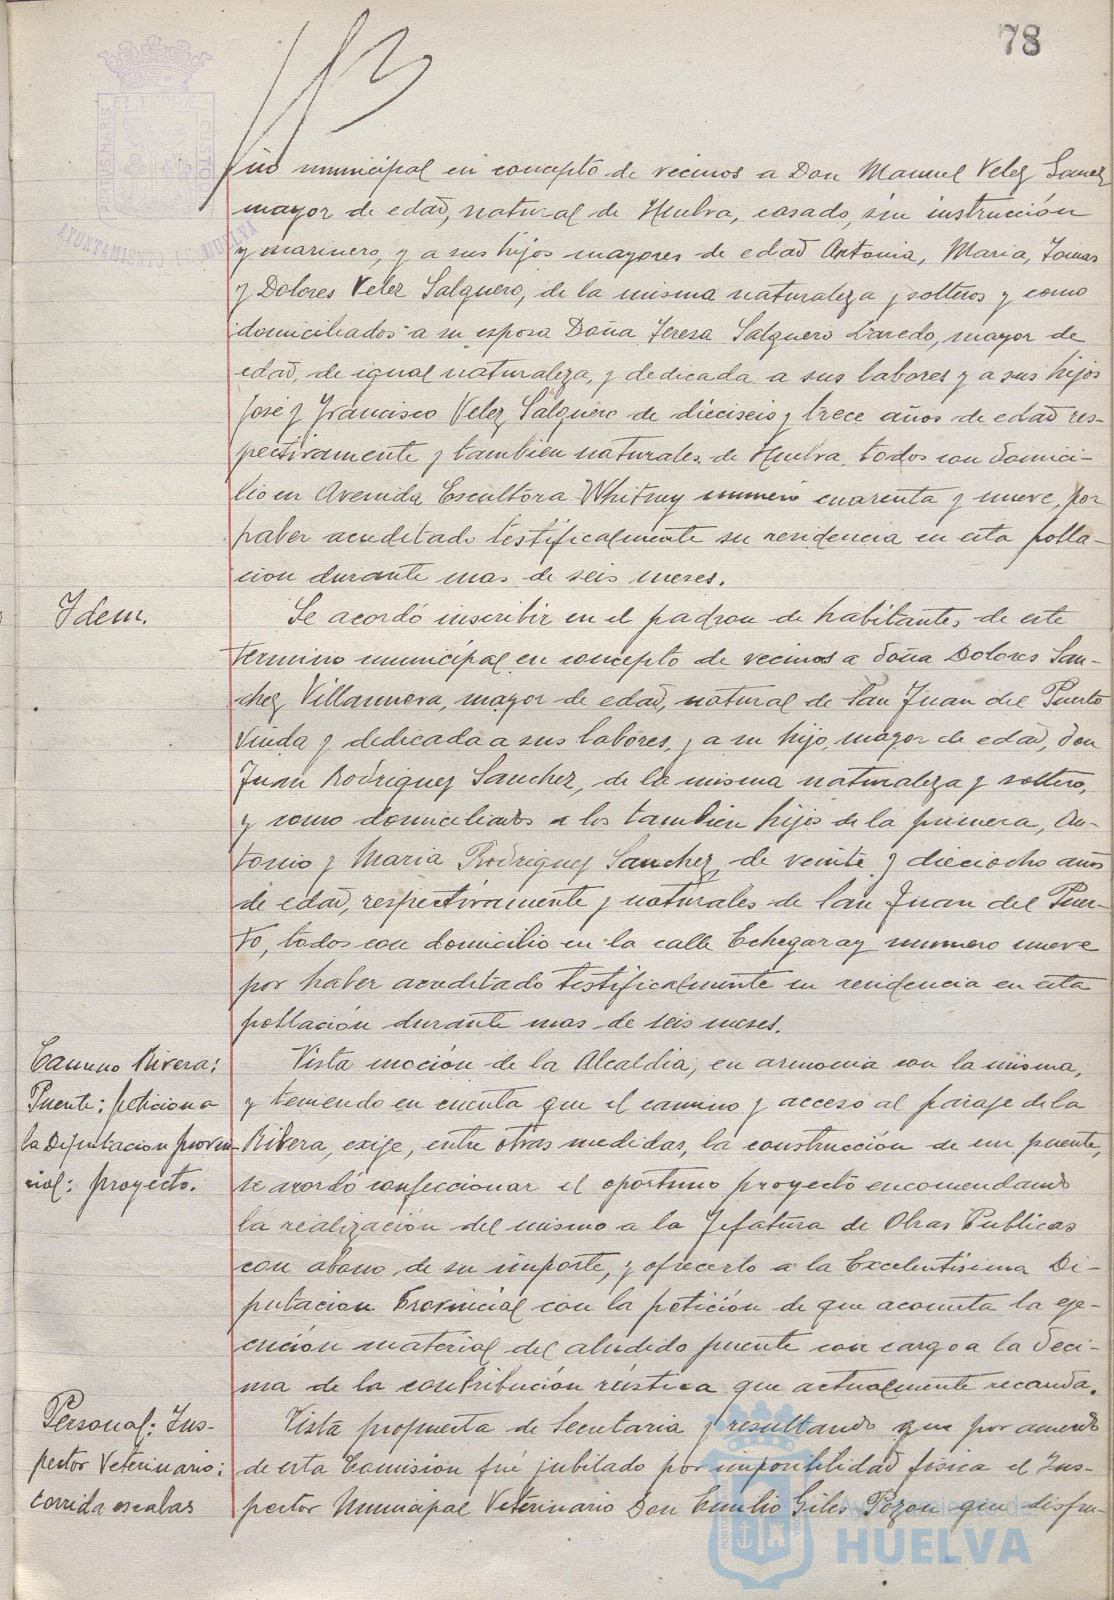 78
PORTUS MARIS ET TERRAE CUSTODIA
AYUNTAMIENTO DE HUELVA
no municipal en concepto de vecinos a Don Manuel Velez
mayor de edad, natural de Huelva, casado, sin instrucción
y marinero, y a sus hijos mayores de edad Antonia, Maria,
y Dolores Velez Salguero, de la misma naturaleza y solteros y como
domiciliados a su esposa Doña Teresa Salguero mayor de
edad, de igual naturaleza, y dedicada a sus labores y a sus hijos
José y Francisco Velez Salguero de dieciseis y trece años de edad res-
pectivamente y tambien naturales de Huelva, todos con domici-
lio en Avenida Escultora Whitney numero cuarenta y nueve, por
haber acreditado testificalmente su residencia en esta pobla-
cion durante mas de seis meses.
Idem.
Se acordó inscribir en el padron de habitantes de este
termino municipal en concepto de vecinos a doña Dolores San-
chez Villanueva, mayor de edad, natural de San Juan del Puerto
viuda y dedicada a sus labores, y a su hijo, mayor de edad, don
Juan Rodriguez Sanchez, de la misma naturaleza y soltero,
y como domiciliados a los tambien hijos de la primera, An-
tonio y Maria Rodriguez Sanchez, de veinte y dieciocho años
de edad, respectivamente y naturales de San Juan del Puer-
to, todos con domicilio en la calle Echegaray numero nueve
por haber acreditado testificalmente su residencia en esta
población durante mas de seis meses.
Camino Rivera:
Puente: peticion a
la Diputacion provin-
cial: proyecto.
Vista moción de la Alcaldia, en armonia con la misma,
y teniendo en cuenta que el camino y acceso al paraje de la
Rivera, exige, entre otras medidas, la construcción de un puente,
se acordó confeccionar el oportuno proyecto encomendando
la realización del mismo a la Jefatura de Obras Publicas
con abono de su importe, y ofrecerlo a la Excelentisima Di-
putacion Provincial con la petición de que acometa la eje-
cución material del aludido puente con cargo a la deci-
ma de la contribución rústica que actualmente recauda.
Personal: Ins-
pector Veterinario:
corrida escalas
Vista propuesta de Secretaria y resultando que por acuerdo
de esta Comisión fué jubilado por imposibilidad fisica el Ins-
pector Municipal Veterinario Don Emilio Giles Pozon que disfru-
Ayuntamiento de
HUELVA